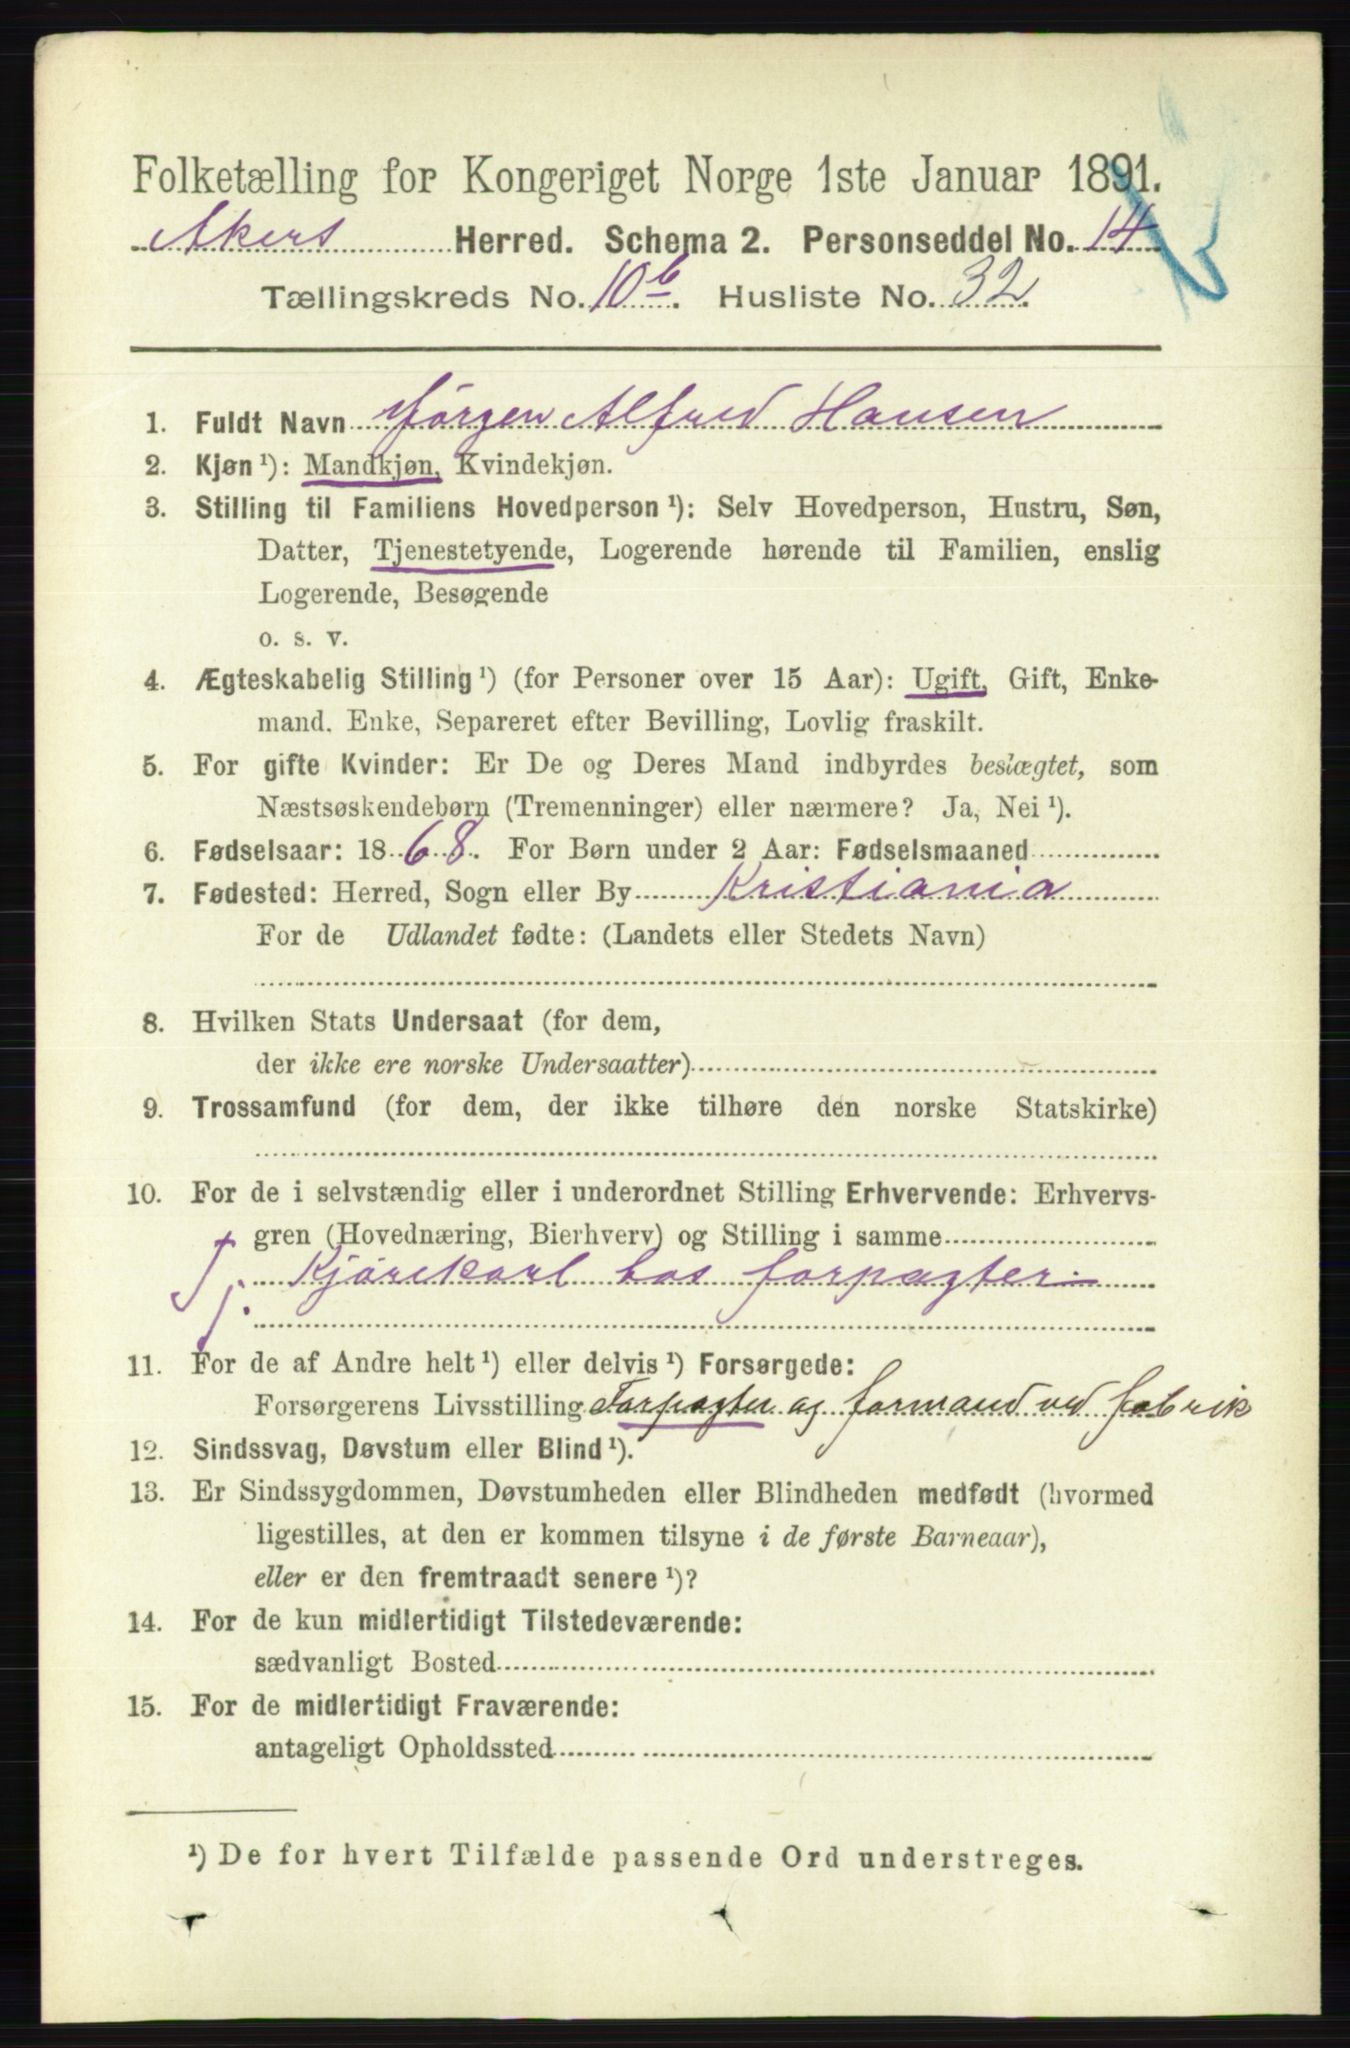 Folketælling for Kongeriget Norge 1ste Januar 1891.
Akers Herred. Schema 2. Personseddel No. 14
Tællingskreds No. 10b. Husliste No. 32.
1. Fuldt Navn Jørgen Alfred Hansen
2. Kjøn ¹): Mandkjøn, Kvindekjøn.
3. Stilling til Familiens Hovedperson ¹): Selv Hovedperson, Hustru, Søn,
Datter, Tjenestetyende, Logerende hørende til Familien, enslig
Logerende, Besøgende
o. s. v.
4. Ægteskabelig Stilling ¹) (for Personer over 15 Aar): Ugift, Gift, Enke-
mand, Enke, Separeret efter Bevilling, Lovlig fraskilt.
5. For gifte Kvinder: Er De og Deres Mand indbyrdes beslægtet, som
Næstsøskendebørn (Tremenninger) eller nærmere? Ja, Nei ¹).
6. Fødselsaar: 1868. For Børn under 2 Aar: Fødselsmaaned
7. Fødested: Herred, Sogn eller By Kristiania
For de Udlandet fødte: (Landets eller Stedets Navn)
8. Hvilken Stats Undersaat (for dem,
der ikke ere norske Undersaatter)
9. Trossamfund (for dem, der ikke tilhøre den norske Statskirke)
10. For de i selvstændig eller i underordnet Stilling Erhvervende: Erhvervs-
gren (Hovednæring, Bierhverv) og Stilling i samme
Tj. Kjørekarl hos forpagter
11. For de af Andre helt ¹) eller delvis ¹) Forsørgede:
Forsørgerens Livsstilling Forpagter og formand ved fabrik
12. Sindssvag, Døvstum eller Blind ¹).
13. Er Sindssygdommen, Døvstumheden eller Blindheden medfødt (hvormed
ligestilles, at den er kommen tilsyne i de første Barneaar),
eller er den fremtraadt senere ¹)?
14. For de kun midlertidigt Tilstedeværende:
sædvanligt Bosted
15. For de midlertidigt Fraværende:
antageligt Opholdssted
¹) De for hvert Tilfælde passende Ord understreges.